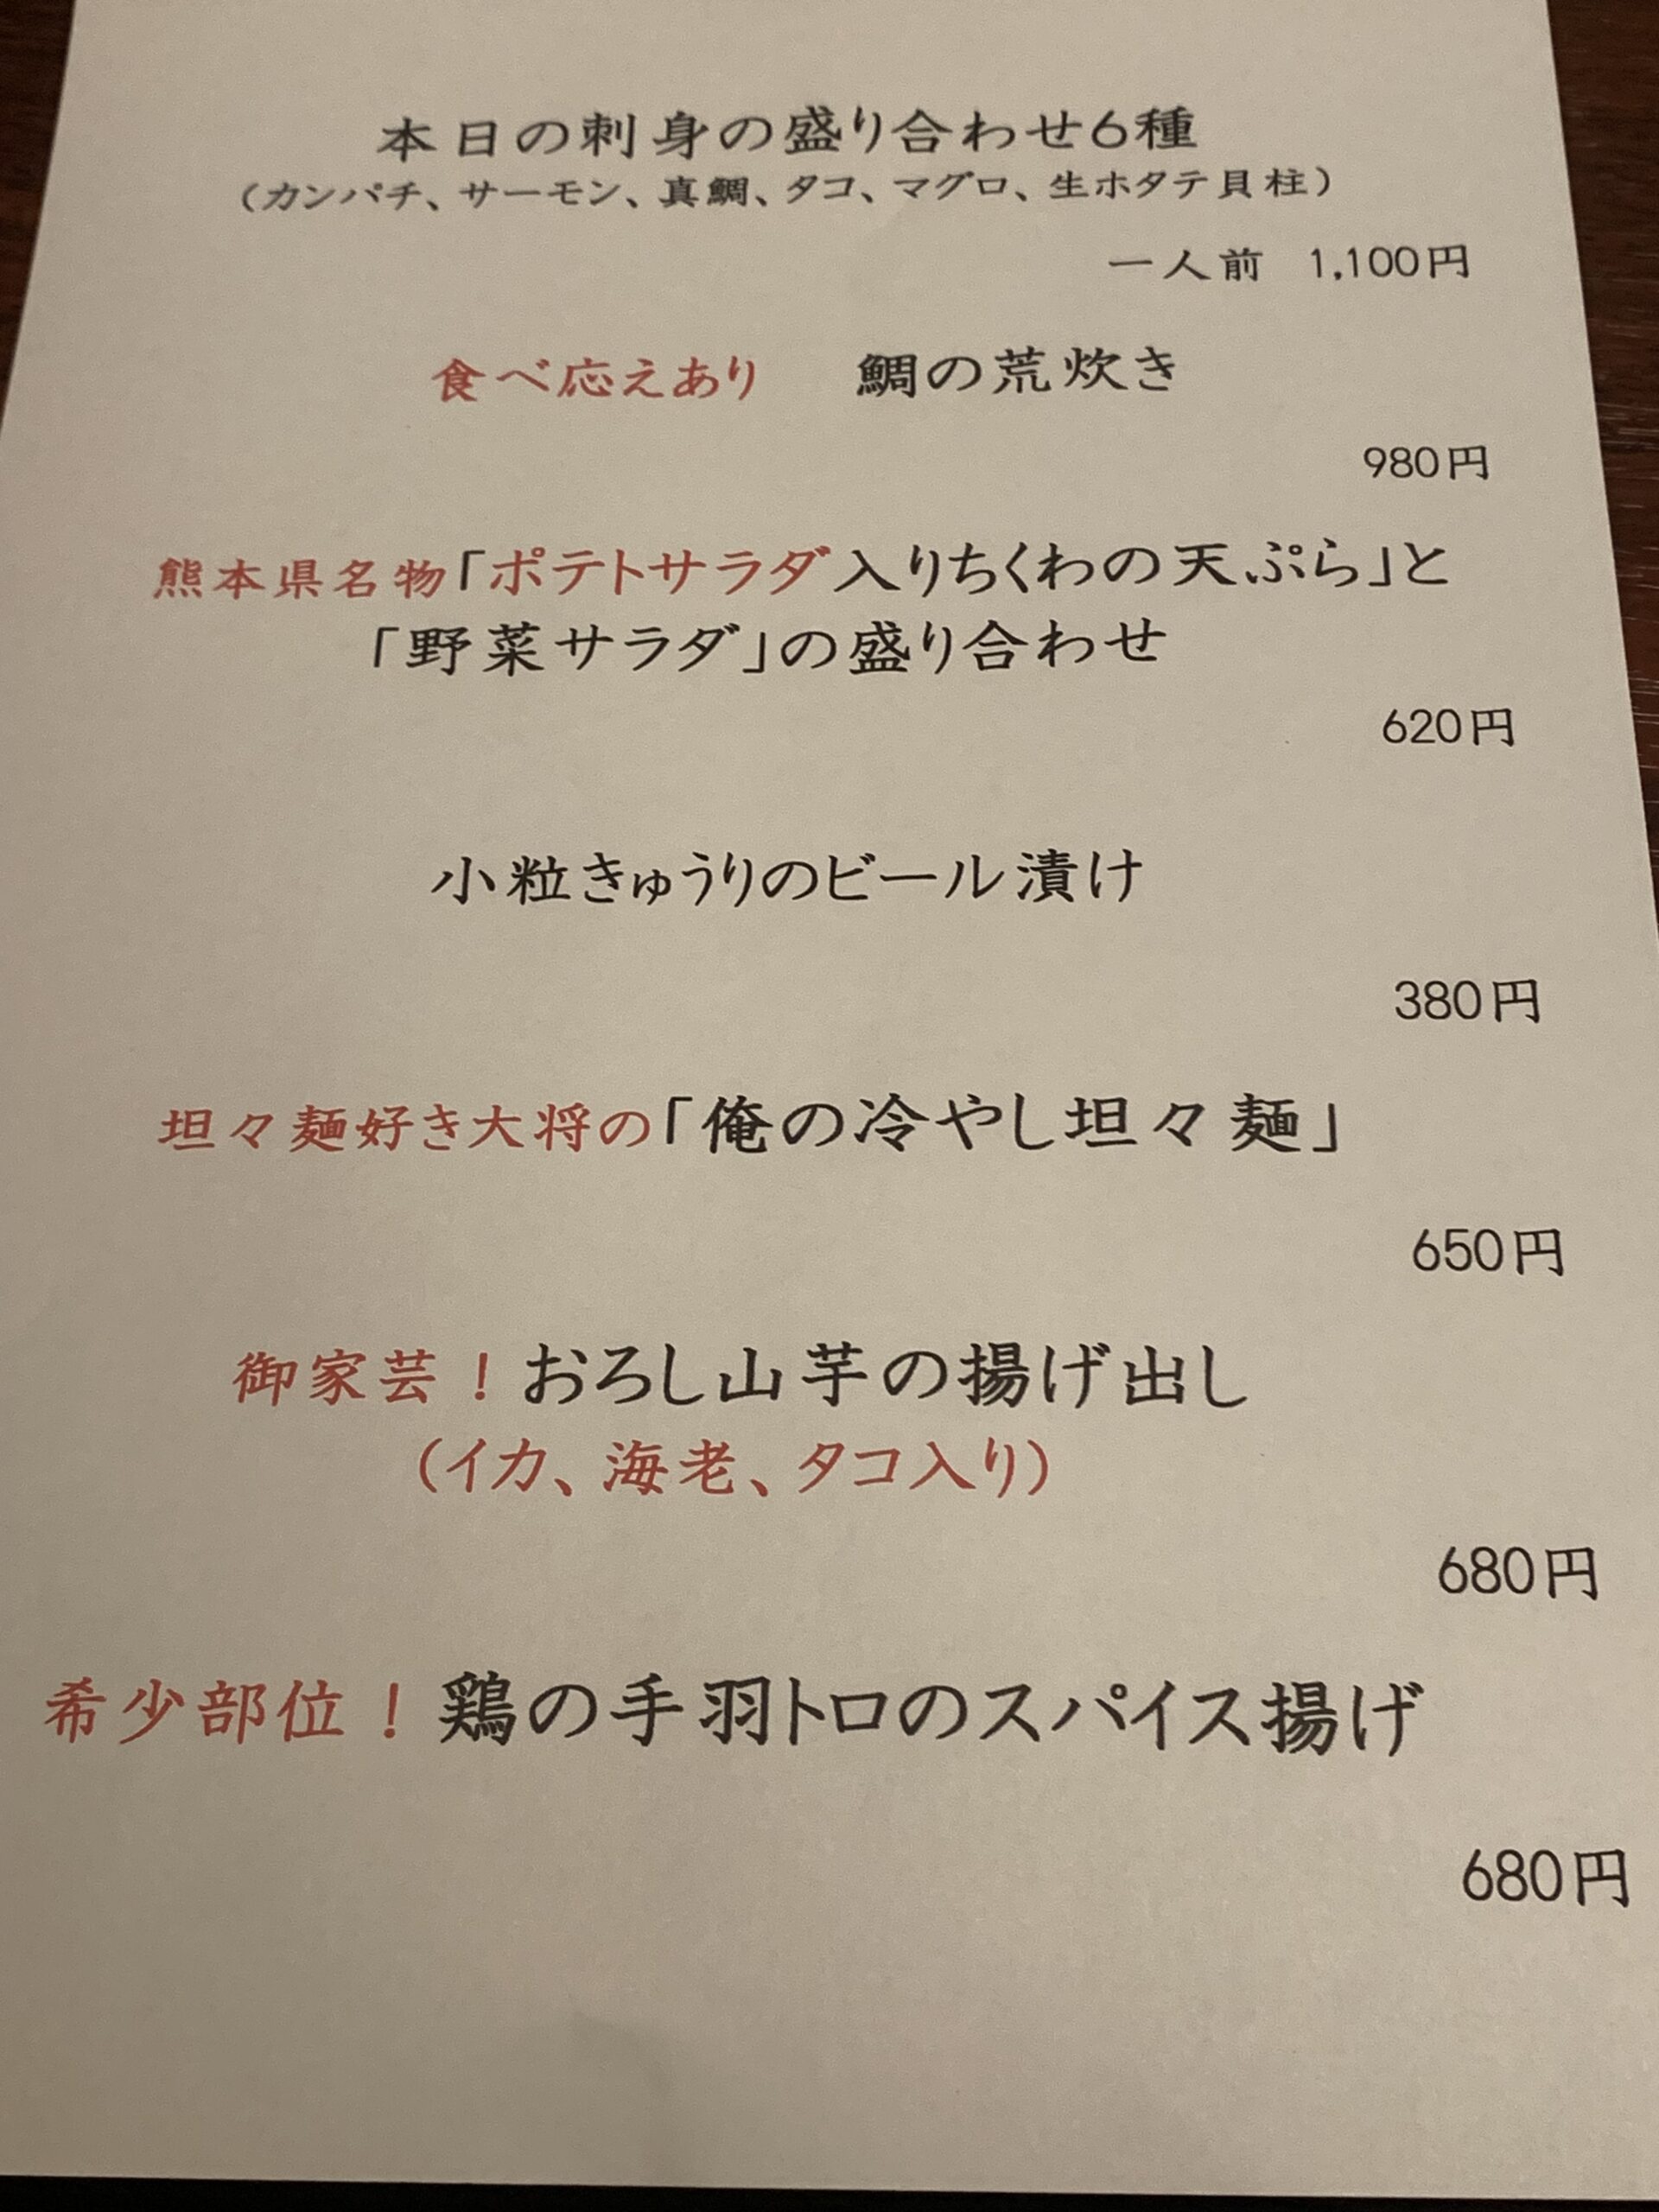 本日の刺身の盛り合わせ6種
（カンパチ、サーモン、真鯛、タコ、マグロ、生ホタテ貝柱）
一人前 1,100円
食べ応えあり 鯛の荒炊き
980円
熊本県名物「ポテトサラダ入りちくわの天ぷら」と
「野菜サラダ」の盛り合わせ
620円
小粒きゅうりのビール漬け
380円
坦々麺好き大将の「俺の冷やし坦々麺」
650円
御家芸！おろし山芋の揚げ出し
（イカ、海老、タコ入り）
680円
希少部位！鶏の手羽トロのスパイス揚げ
680円